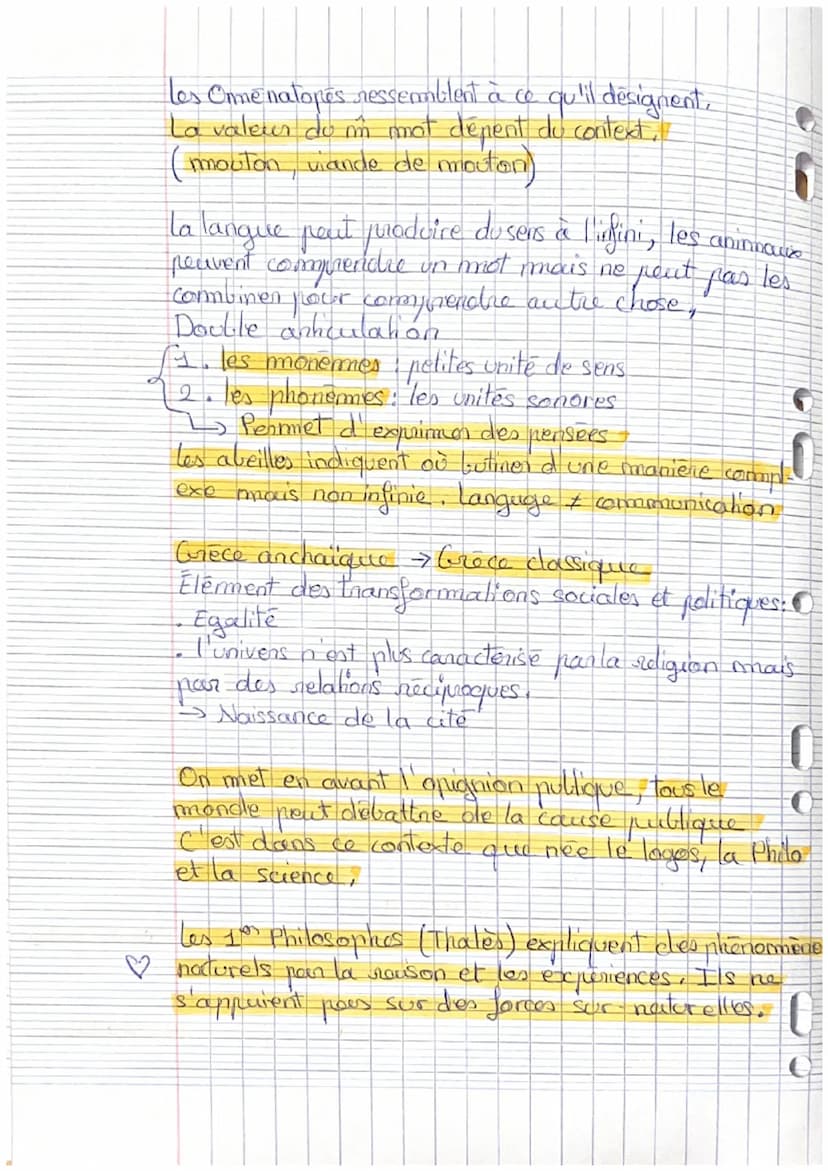 Les Oménatopés ressemblent à ce qu'il désignent.
La valeur du m̂ mot dépent du context.
(mouton, viande de mouton)
La langue peut produire du sens à l'infini, les animaux
peuvent comprendre un mot mais ne peut pas les
combiner pour comprendre autre chose,
Double articulation
1. les monèmes : petites unité de sens
2. les phonèmes : les unités sonores
↳ Permet d'exprimer des pensées
Les abeilles indiquent où butiner d'une manière compl-
exe mais non infinie. Language ≠ communication
Grèce archaïque → Grèce classique
Élèment des transformations sociales et politiques:
. Egalité
. l'univers n'est plus caractérisé par la religion mais
par des relations réciproques.
→ Naissance de la cité
On met en avant l'opignion publique, tous le
monde peut débattre de la cause publique
C'est dans ce contexte que née le logos, la Philo
et la science,
Les 1er Philosophes (Thalès) expliquent des phénomène
♡ naturels par la raison et les expériences. Ils ne
s'appuient pas sur des forces sur-naturelles.